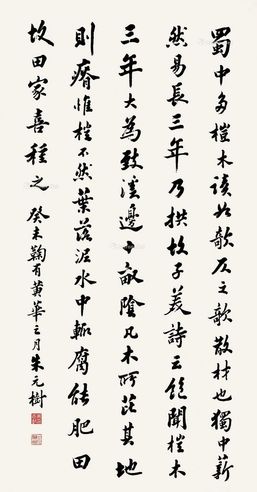 蜀中多桤木读如欹仄之欹散材也独中薪
然易長三年乃拱故子美詩云飽聞桤木
三年大為致溪邊十畝陰凡木所芘其地
則瘠惟桤不然葉落泥水中輒腐能肥田
故田家喜種之
癸未鞠有黃華之月朱元樹